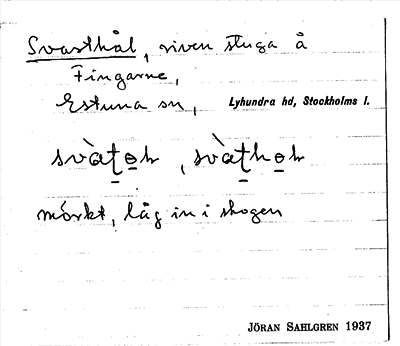 Svarthål, riven stuga å
Fingarne,
Estuna sn, Lyhundra hd, Stockholms l.
mörkt, låg in i skogen
JÖRAN SAHLGREN 1937